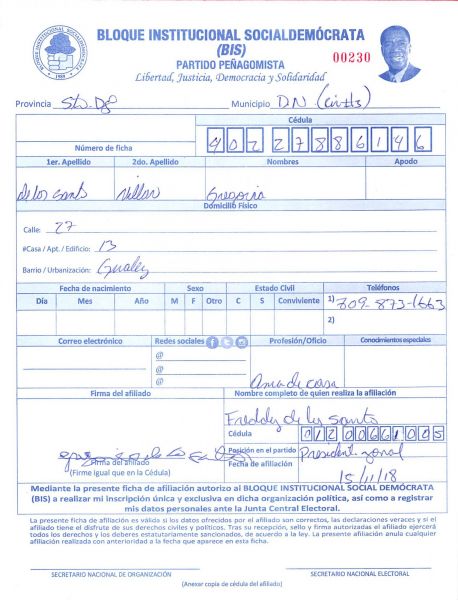 BLOQUE INSTITUCIONAL SOCIALDEMÓCRATA
(BIS)
00230
PARTIDO PEÑAGOMISTA
Libertad, Justicia, Democracia y Solidaridad
Provincia Sto. Dgo Municipio DN
Cédula
Número de ficha 402 2788614 6
1er. Apellido 2do. Apellido Nombres Apodo
de los Santo Villar Gregoria
Domicilio Físico
Calle: 27
#Casa / Apt. / Edificio: 13
Barrio / Urbanización: Gualey
Fecha de nacimiento Sexo Estado Civil Teléfonos
Día Mes Año M F Otro C S Conviviente 1) 809-873-1663
2)
Correo electrónico Redes sociales Profesión/Oficio Conocimientos especiales
@
@
@ Ama de casa
Firma del afiliado Nombre completo de quien realiza la afiliación
Freddy de los Santo
Cédula 012 0066100 5
Posición en el partido President zonal
Firma del afiliado Fecha de afiliación
(Firme igual que en la Cédula) 15/11/18
Mediante la presente ficha de afiliación autorizo al BLOQUE INSTITUCIONAL SOCIAL DEMÓCRATA
(BIS) a realizar mi inscripción única y exclusiva en dicha organización política, así como a registrar
mis datos personales ante la Junta Central Electoral.
La presente ficha de afiliación es válida si los datos ofrecidos por el afiliado son correctos, las declaraciones veraces y si el
afiliado tiene el disfrute de sus derechos civiles y políticos. Tras su recepción, sello y firma autorizadas el afiliado ejercerá
todos los derechos y los deberes estatutariamente sancionados, de acuerdo a la ley. La presente afiliación anula cualquier
afiliación realizada con anterioridad a la fecha que aparece en esta ficha.
SECRETARIO NACIONAL DE ORGANIZACIÓN SECRETARIO NACIONAL ELECTORAL
(Anexar copia de cédula del afiliado)